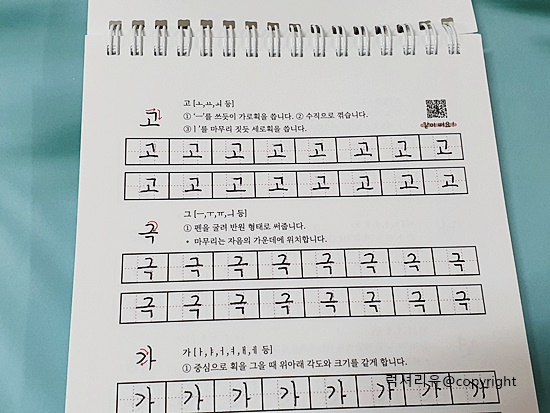 고 고 [ㅗ,ㅛ,ㅚ 등]
① 'ㅡ'를 쓰듯이 가로획을 씁니다. ② 수직으로 꺾습니다.
③ 'ㅣ'를 마무리 짓듯 세로획을 씁니다.
고 고 고 고 고 고 고 고
고 고 고 고 고 고 고 고
극 그 [ㅡ,ㅜ,ㅠ,ㅢ 등]
① 펜을 굴려 반원 형태로 써줍니다.
• 마무리는 자음의 가운데에 위치합니다.
극 극 극 극 극 극 극 극
극 극 극 극 극 극 극 극
가 가 [ㅏ,ㅑ,ㅓ,ㅕ,ㅐ,ㅔ 등]
① 중심으로 획을 그을 때 위아래 각도와 크기를 같게 합니다.
가 가 가 가 가 가 가 가
럭셔리우@copyright